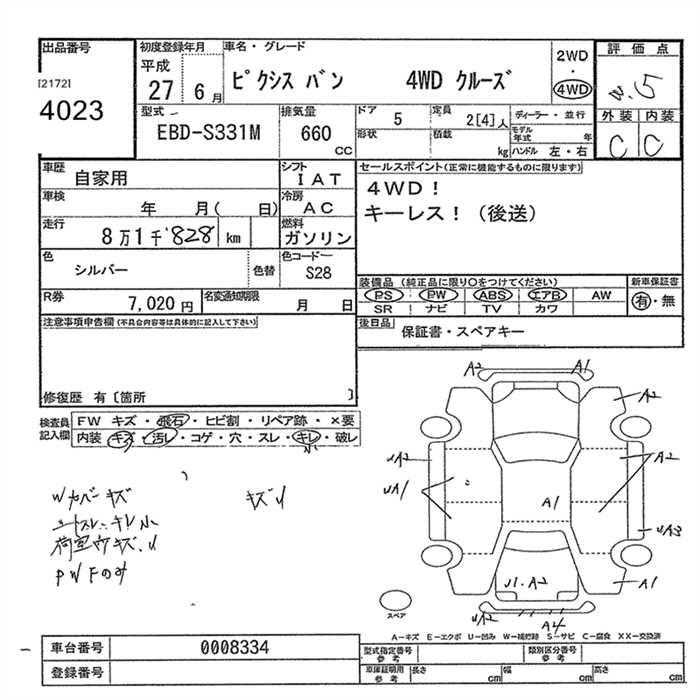 出品番号
[2172]
4023
初度登録年月
平成
27
6 月
車名・グレード
ピクシス バン 4WD クルーズ
2WD
・
4WD
評価点
外装 内装
C C
型式
EBD-S331M
排気量
660
CC
ドア
5
定員
2[4]人
形状
積載
kg
ディーラー・並行
モデル年式 年
ハンドル 左・右
車歴
自家用
シフト
I AT
車検
年 月( 日)
冷房
AC
走行
8万1千828 km
燃料
ガソリン
色
シルバー
色替
色コード
S28
R券
7,020 円
名変通知期限
月 日
セールスポイント(正常に機能するものに限ります)
4WD!
キーレス!(後送)
装備品 (純正品に限り○をつけてください)
PS PW ABS エアB AW
SR ナビ TV カワ
新車保証書
有・無
後日品
保証書・スペアキー
注意事項申告欄(不具合内容等は具体的に記入して下さい)
修復歴 有〔箇所 〕
検査員記入欄
FW キズ・飛石・ヒビ割・リペア跡・×要
内装 キズ・汚レ・コゲ・穴・スレ・キレ・破レ
小
Wカバーキズ
キズU
キレ小
荷室内キズ.U
PWFのみ
A2
A1
A2
UA2
UA1
A2
A1
UA3
U1.A2
A1
UA2
A4
スペア
A−キズ E−エクボ U−凹み W−補修跡 S−サビ C−腐食 XX−交換済
車台番号
0008334
登録番号
型式指定番号
参考
類別区分番号
参考
車庫証明用
参考
長さ cm
幅 cm
高さ cm